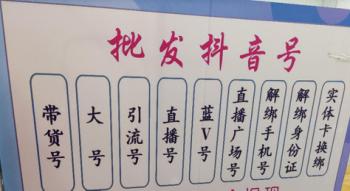 批发抖音号
带货号
大号
引流号
直播号
蓝V号
直播广场号
解绑手机号
解绑身份证
实体卡换绑